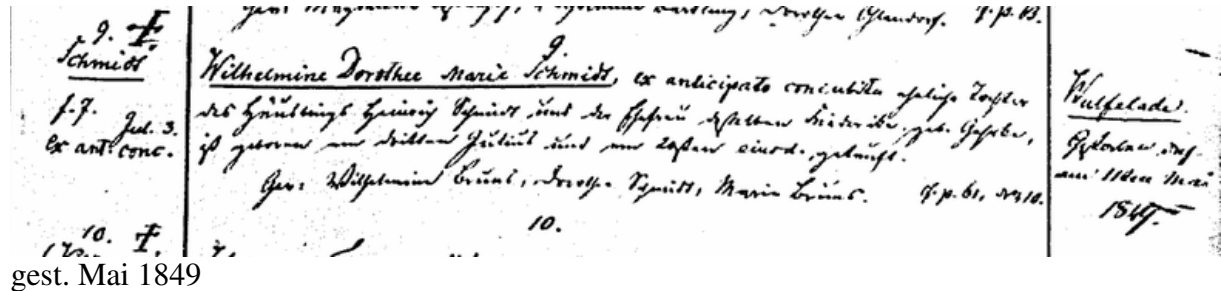 9.
Schmidt
f. 7. Jul. 3.
ex ant. conc.
9.
Wilhelmine Dorothee Marie Schmidt, ex anticipato concubitu eheliche Tochter
des Häuslings Heinrich Schmidt und der Ehefrau desselben Friederike, geb. Gehrke,
ist geboren am dritten Julius und am eiusd. getauft.
Gev: Wilhelmine Bruns, Dorothe Schmidt, Marie Bruns. f. p. 61, No 10.
Wulfelade.
Gestorben
am 11ten Mai
1849.
10.
10.
gest. Mai 1849